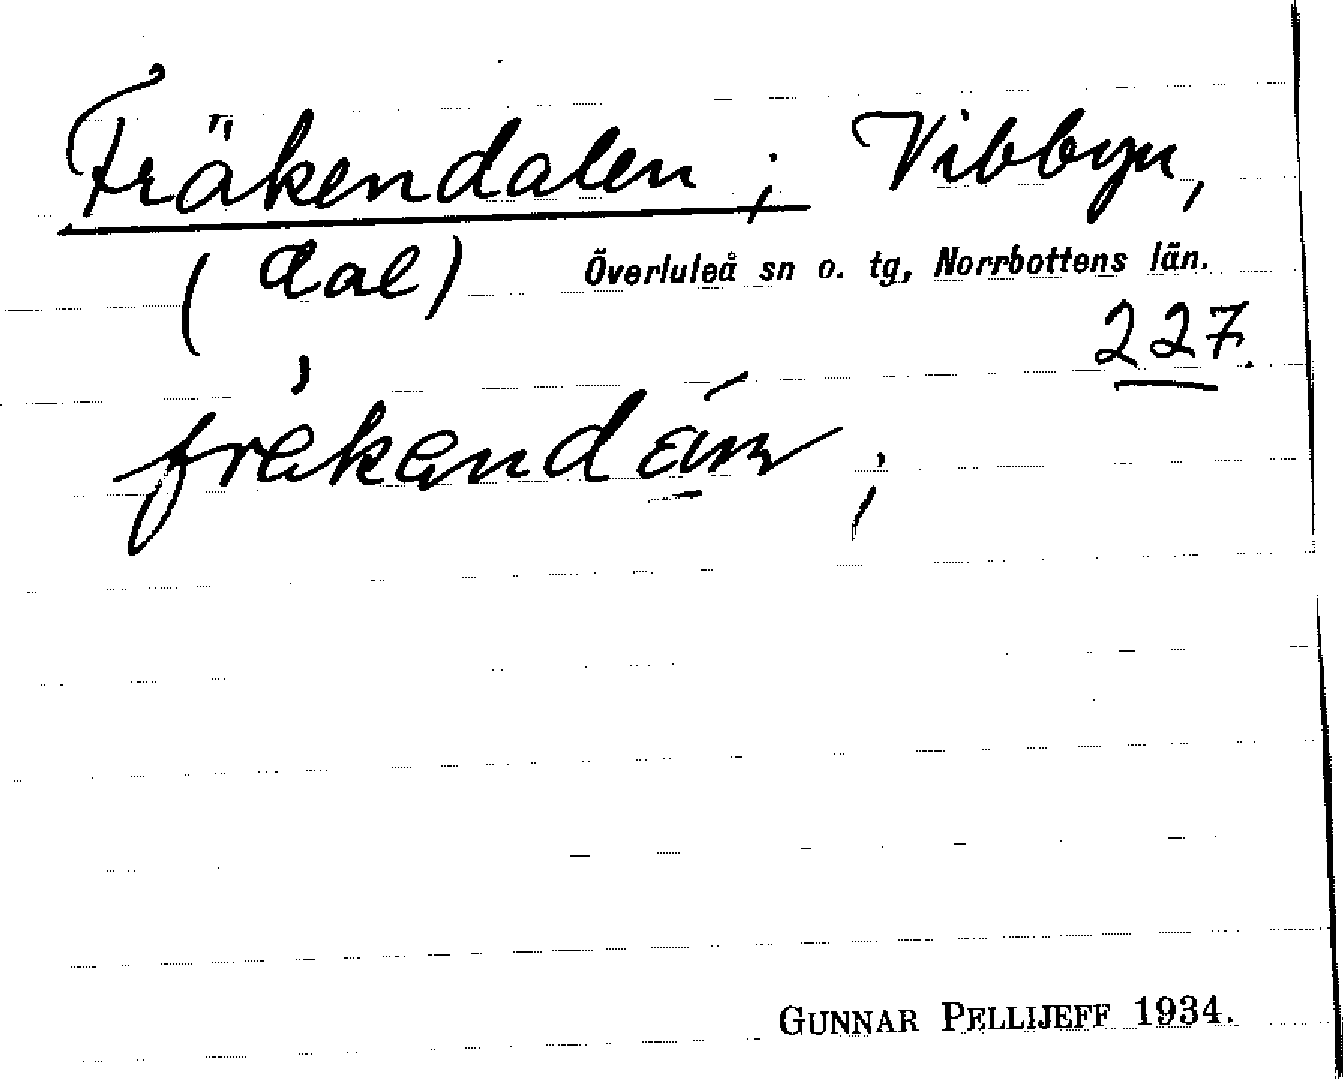 Fräkendalen; Vibbyn,
(dal) Överluleå sn o. tg, Norrbottens län.
227.
GUNNAR PELLIJEFF 1934.